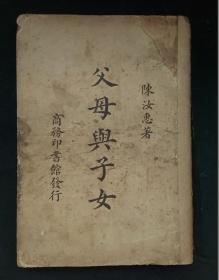 陳汝惠著
父母與子女
商務印書館發行